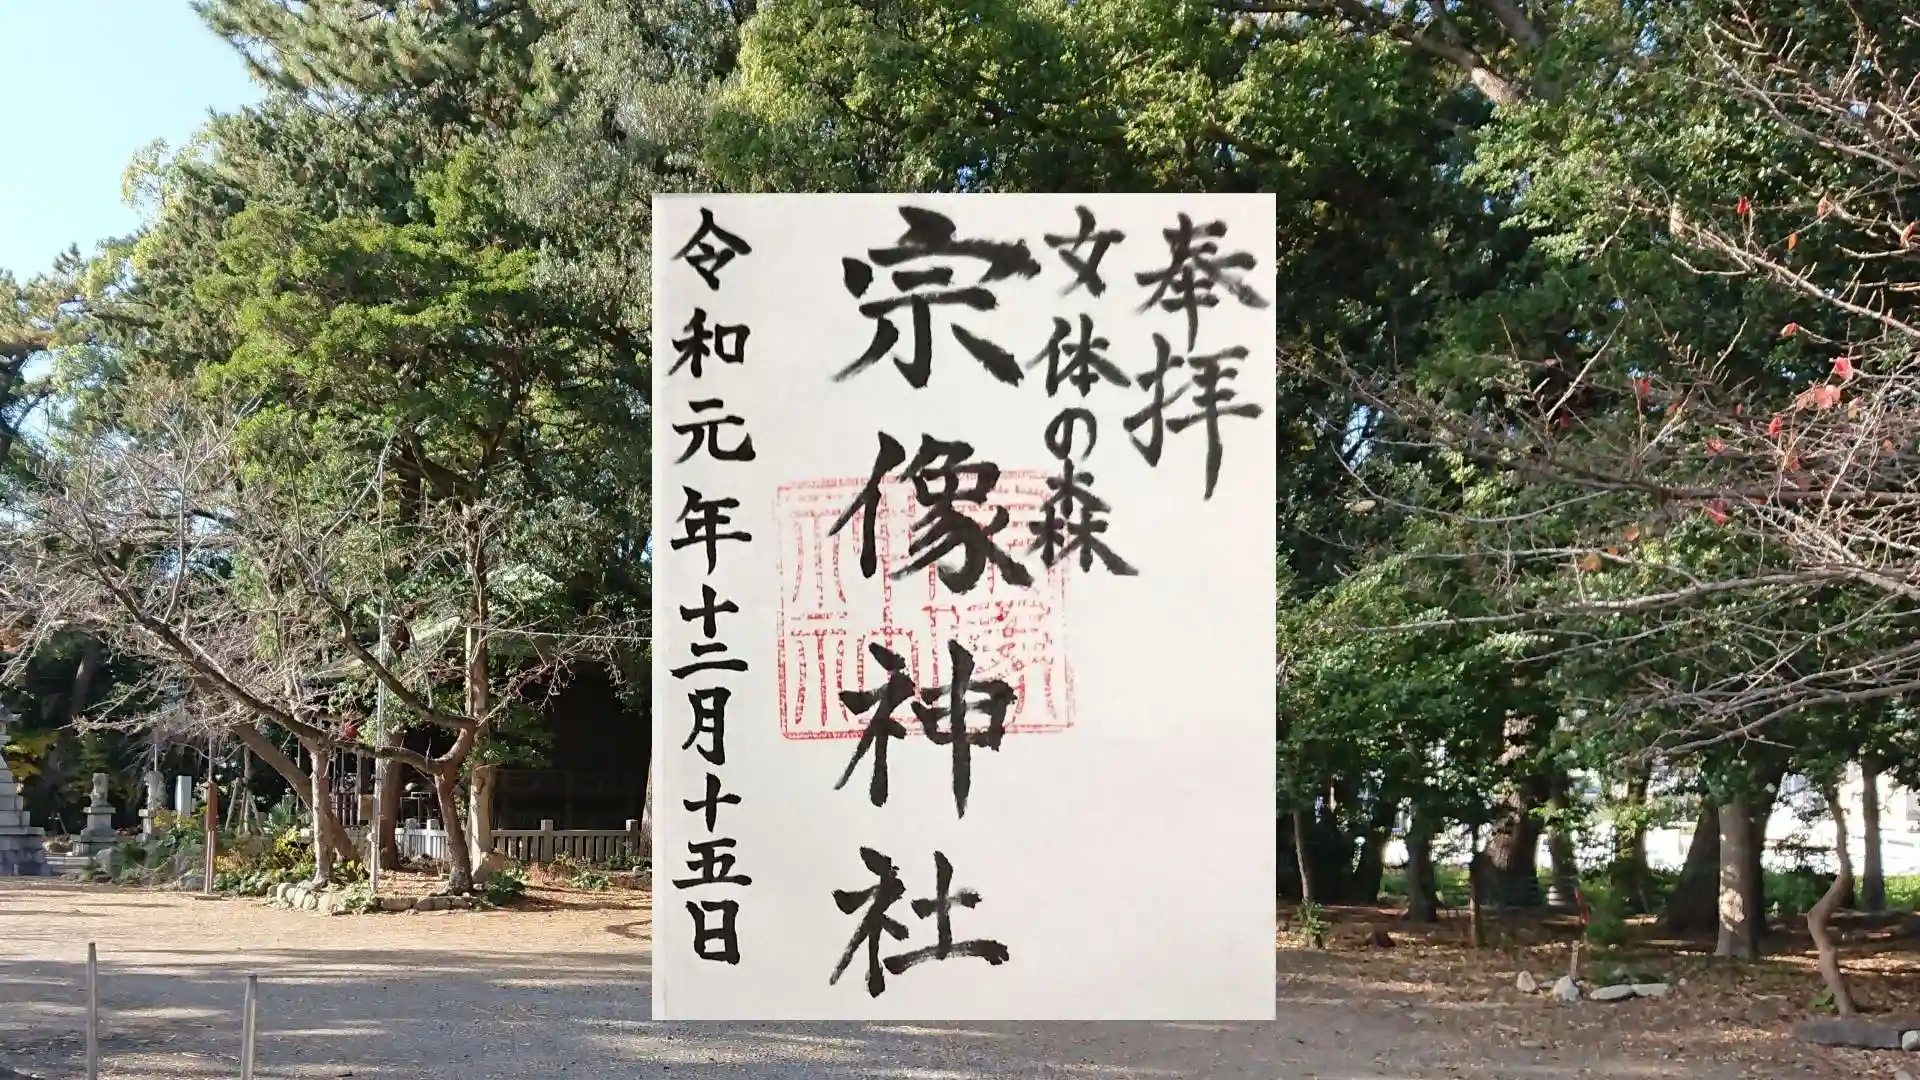 奉拝
文体の森
宗像神社
令和元年十二月十五日